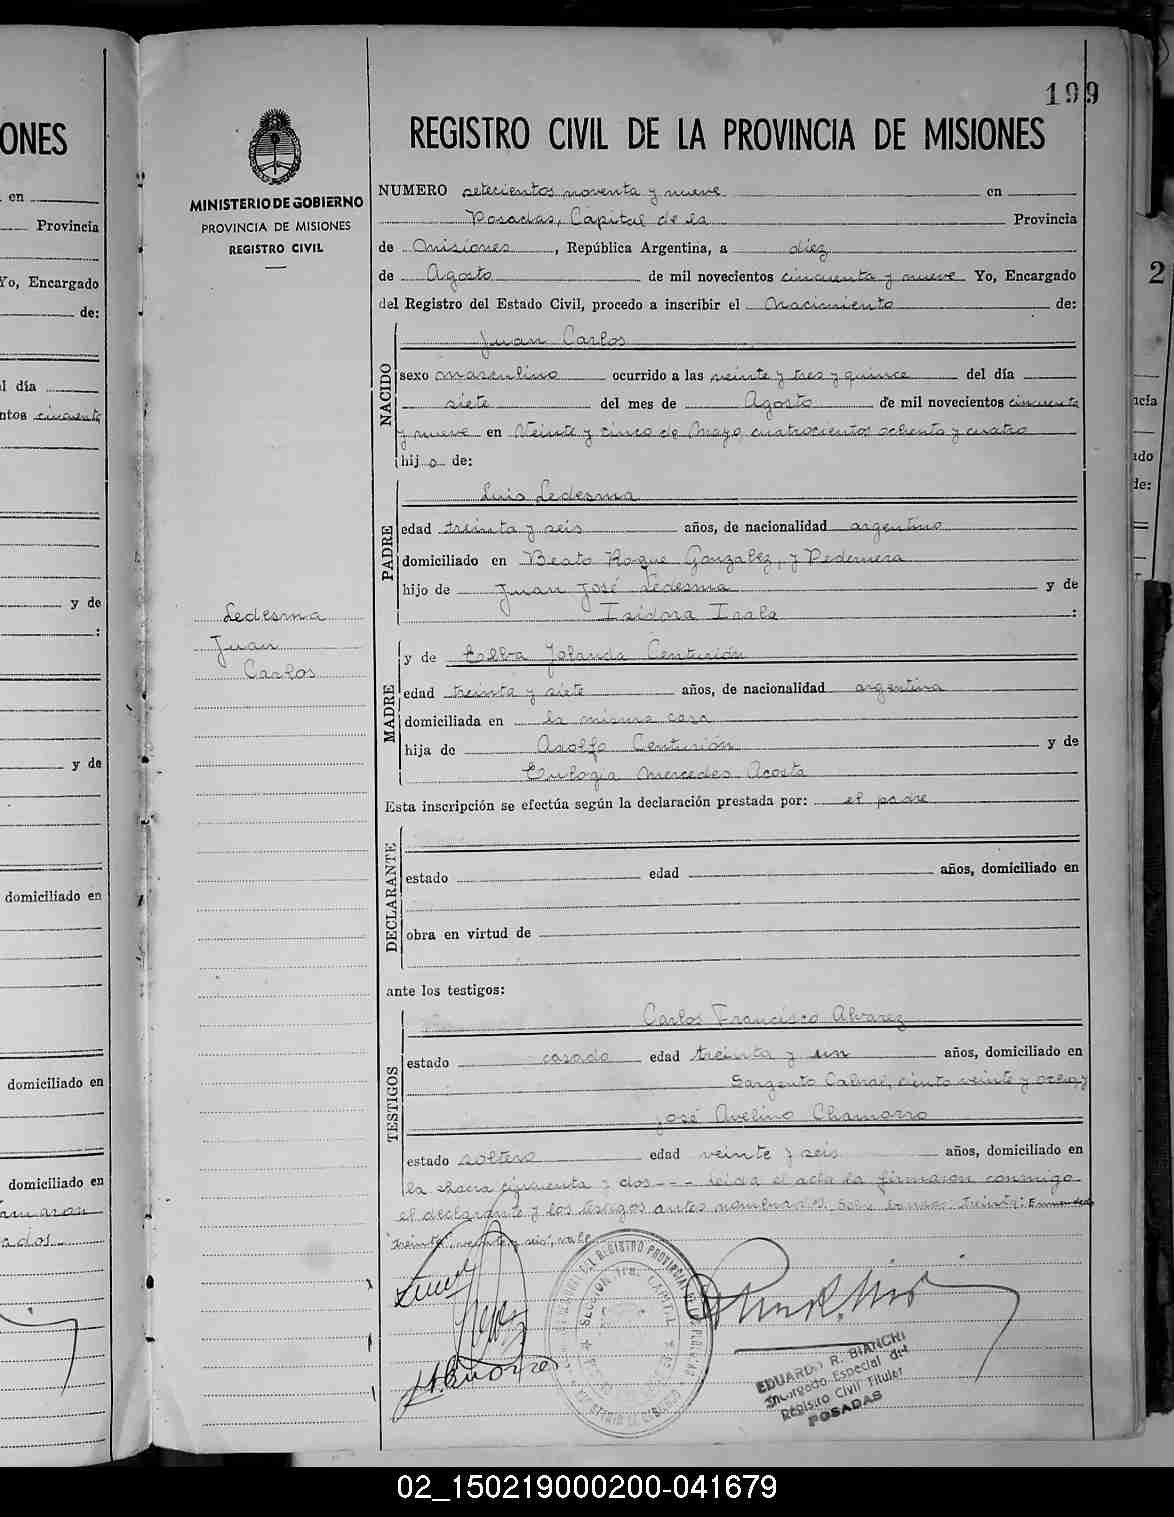 ONES
en
Provincia
Yo, Encargado
de:
l día
ntos cincuenta
y de
:
y de
domiciliado en
domiciliado en
domiciliado en
199
MINISTERIO DE GOBIERNO
PROVINCIA DE MISIONES
REGISTRO CIVIL
Ledesma
Juan
Carlos
REGISTRO CIVIL DE LA PROVINCIA DE MISIONES
NUMERO setecientos noventa y nueve en
Posadas, Capital de la Provincia
de Misiones, República Argentina, a diez
de Agosto de mil novecientos cincuenta y nueve Yo, Encargado
del Registro del Estado Civil, procedo a inscribir el Nacimiento de:
NACIDO
Juan Carlos
sexo masculino ocurrido a las veinte y tres y quince del día
siete del mes de Agosto de mil novecientos cincuenta
y nueve en Veinte y cinco de Mayo, cuatrocientos ochenta y cuatro
hijo de:
PADRE
Luis Ledesma
edad treinta y seis años, de nacionalidad argentino
domiciliado en Beato Roque Gonzalez, y Pedernera
hijo de Juan José Ledesma y de
Isidora Irala :
MADRE
y de Yolanda Centurión
edad treinta y siete años, de nacionalidad argentina
domiciliada en la misma casa
hija de Adolfo Centurión y de
Eulogia Mercedes Acosta
Esta inscripción se efectúa según la declaración prestada por: el padre
DECLARANTE
estado edad años, domiciliado en
obra en virtud de
ante los testigos:
TESTIGOS
Carlos Francisco Alvarez
estado casado edad treinta y un años, domiciliado en
Sargento Cabral, ciento veinte y ocho, y
José Avelino Chamorro
estado soltero edad veinte y seis años, domiciliado en
la chacra cincuenta y dos--- Leida el acta la firmaron conmigo
el declarante y los testigos antes nombrados. Sobre borrado: treinta: Enmendado
"treinta", veinte y seis", vale.
EDUARDO R. BIANCHI
Encargado Especial del
Registro Civil Titular
POSADAS
2
02_150219000200-041679